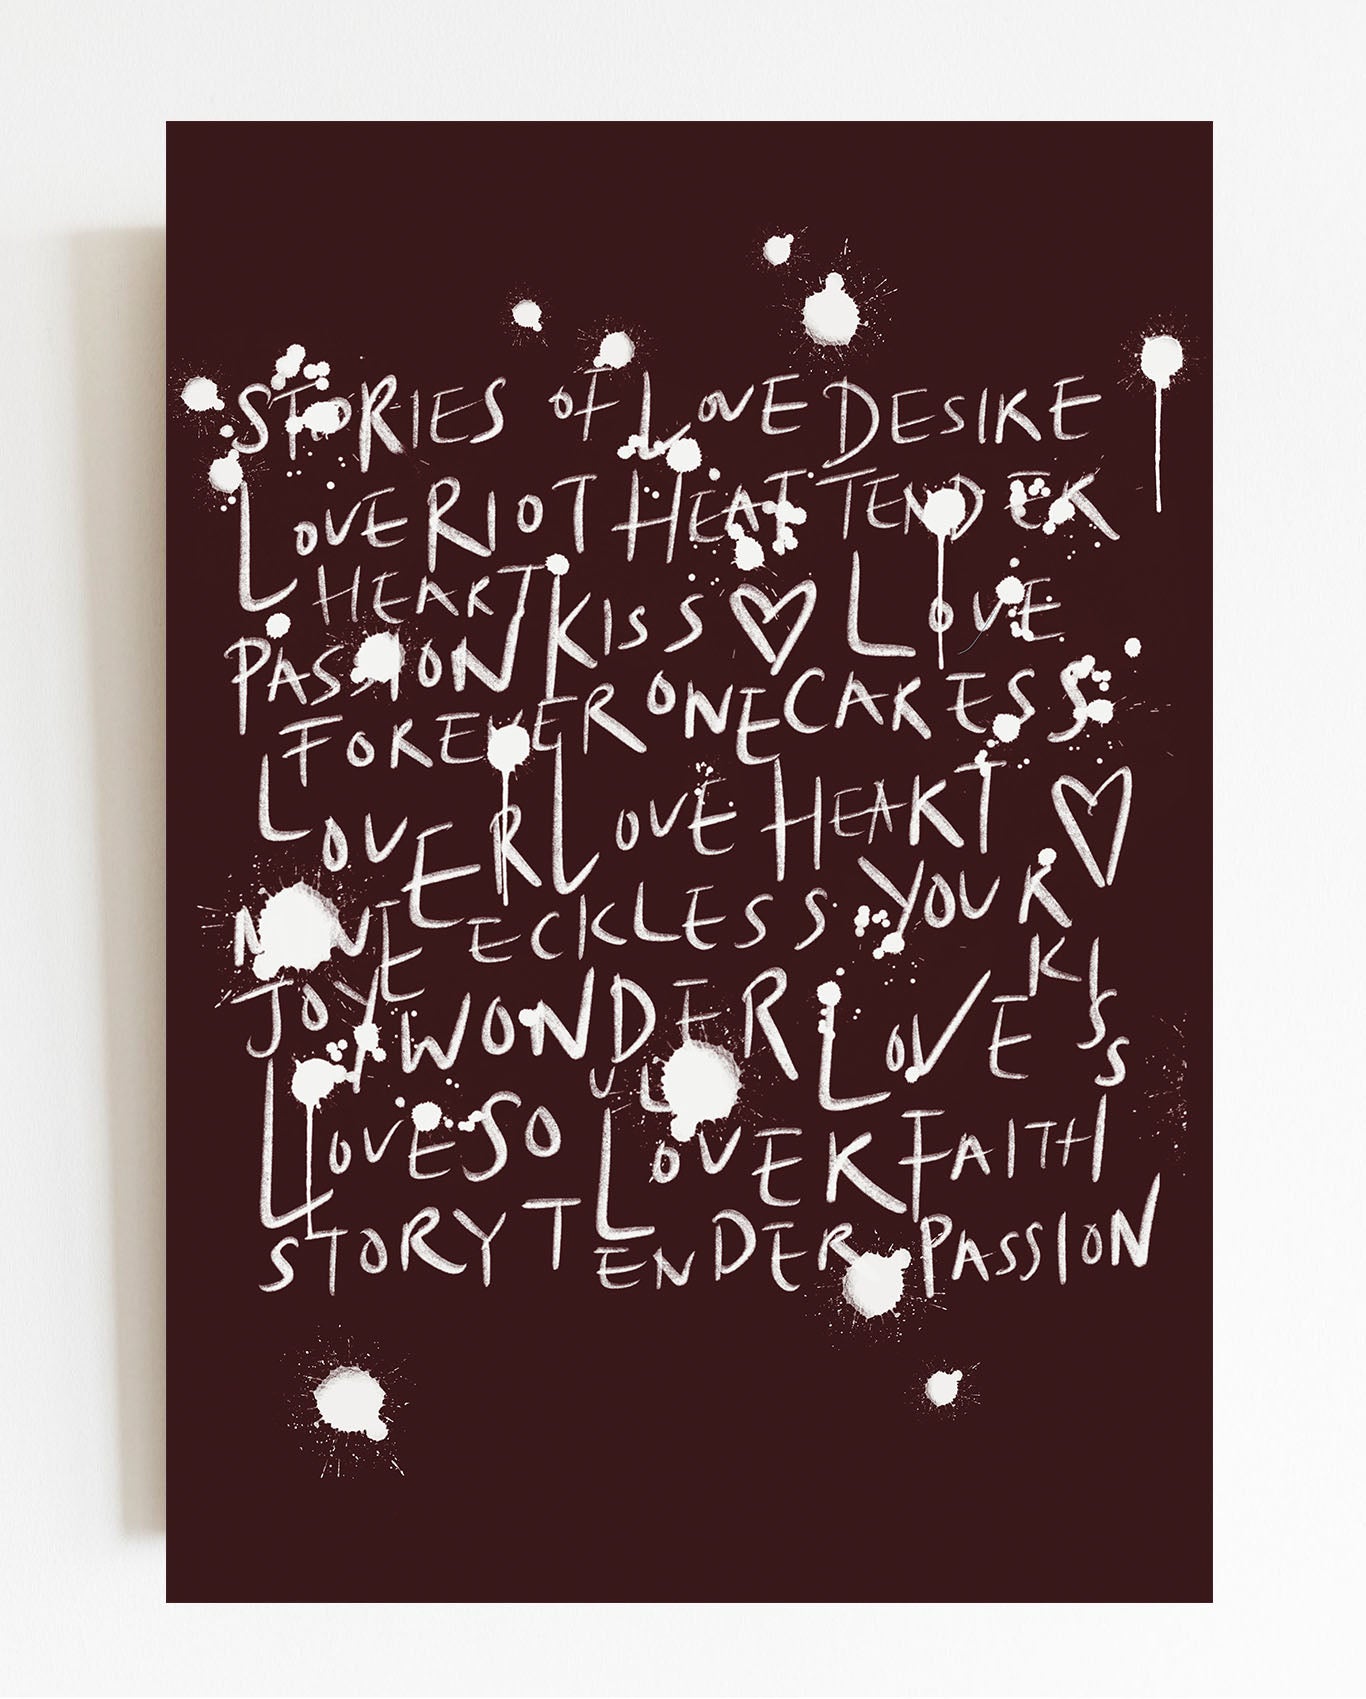 STORIES OF LOVE DESIRE
LOVE RIOT HEAT TENDER
HEART KISS LOVE
PASSION
FOREVER ONE CARESS
LOVER LOVE HEART
ECKLESS YOUR
JOY WONDER LOVE KISS
LOVE SO UL LOVER FAITH
STORY TENDER PASSION